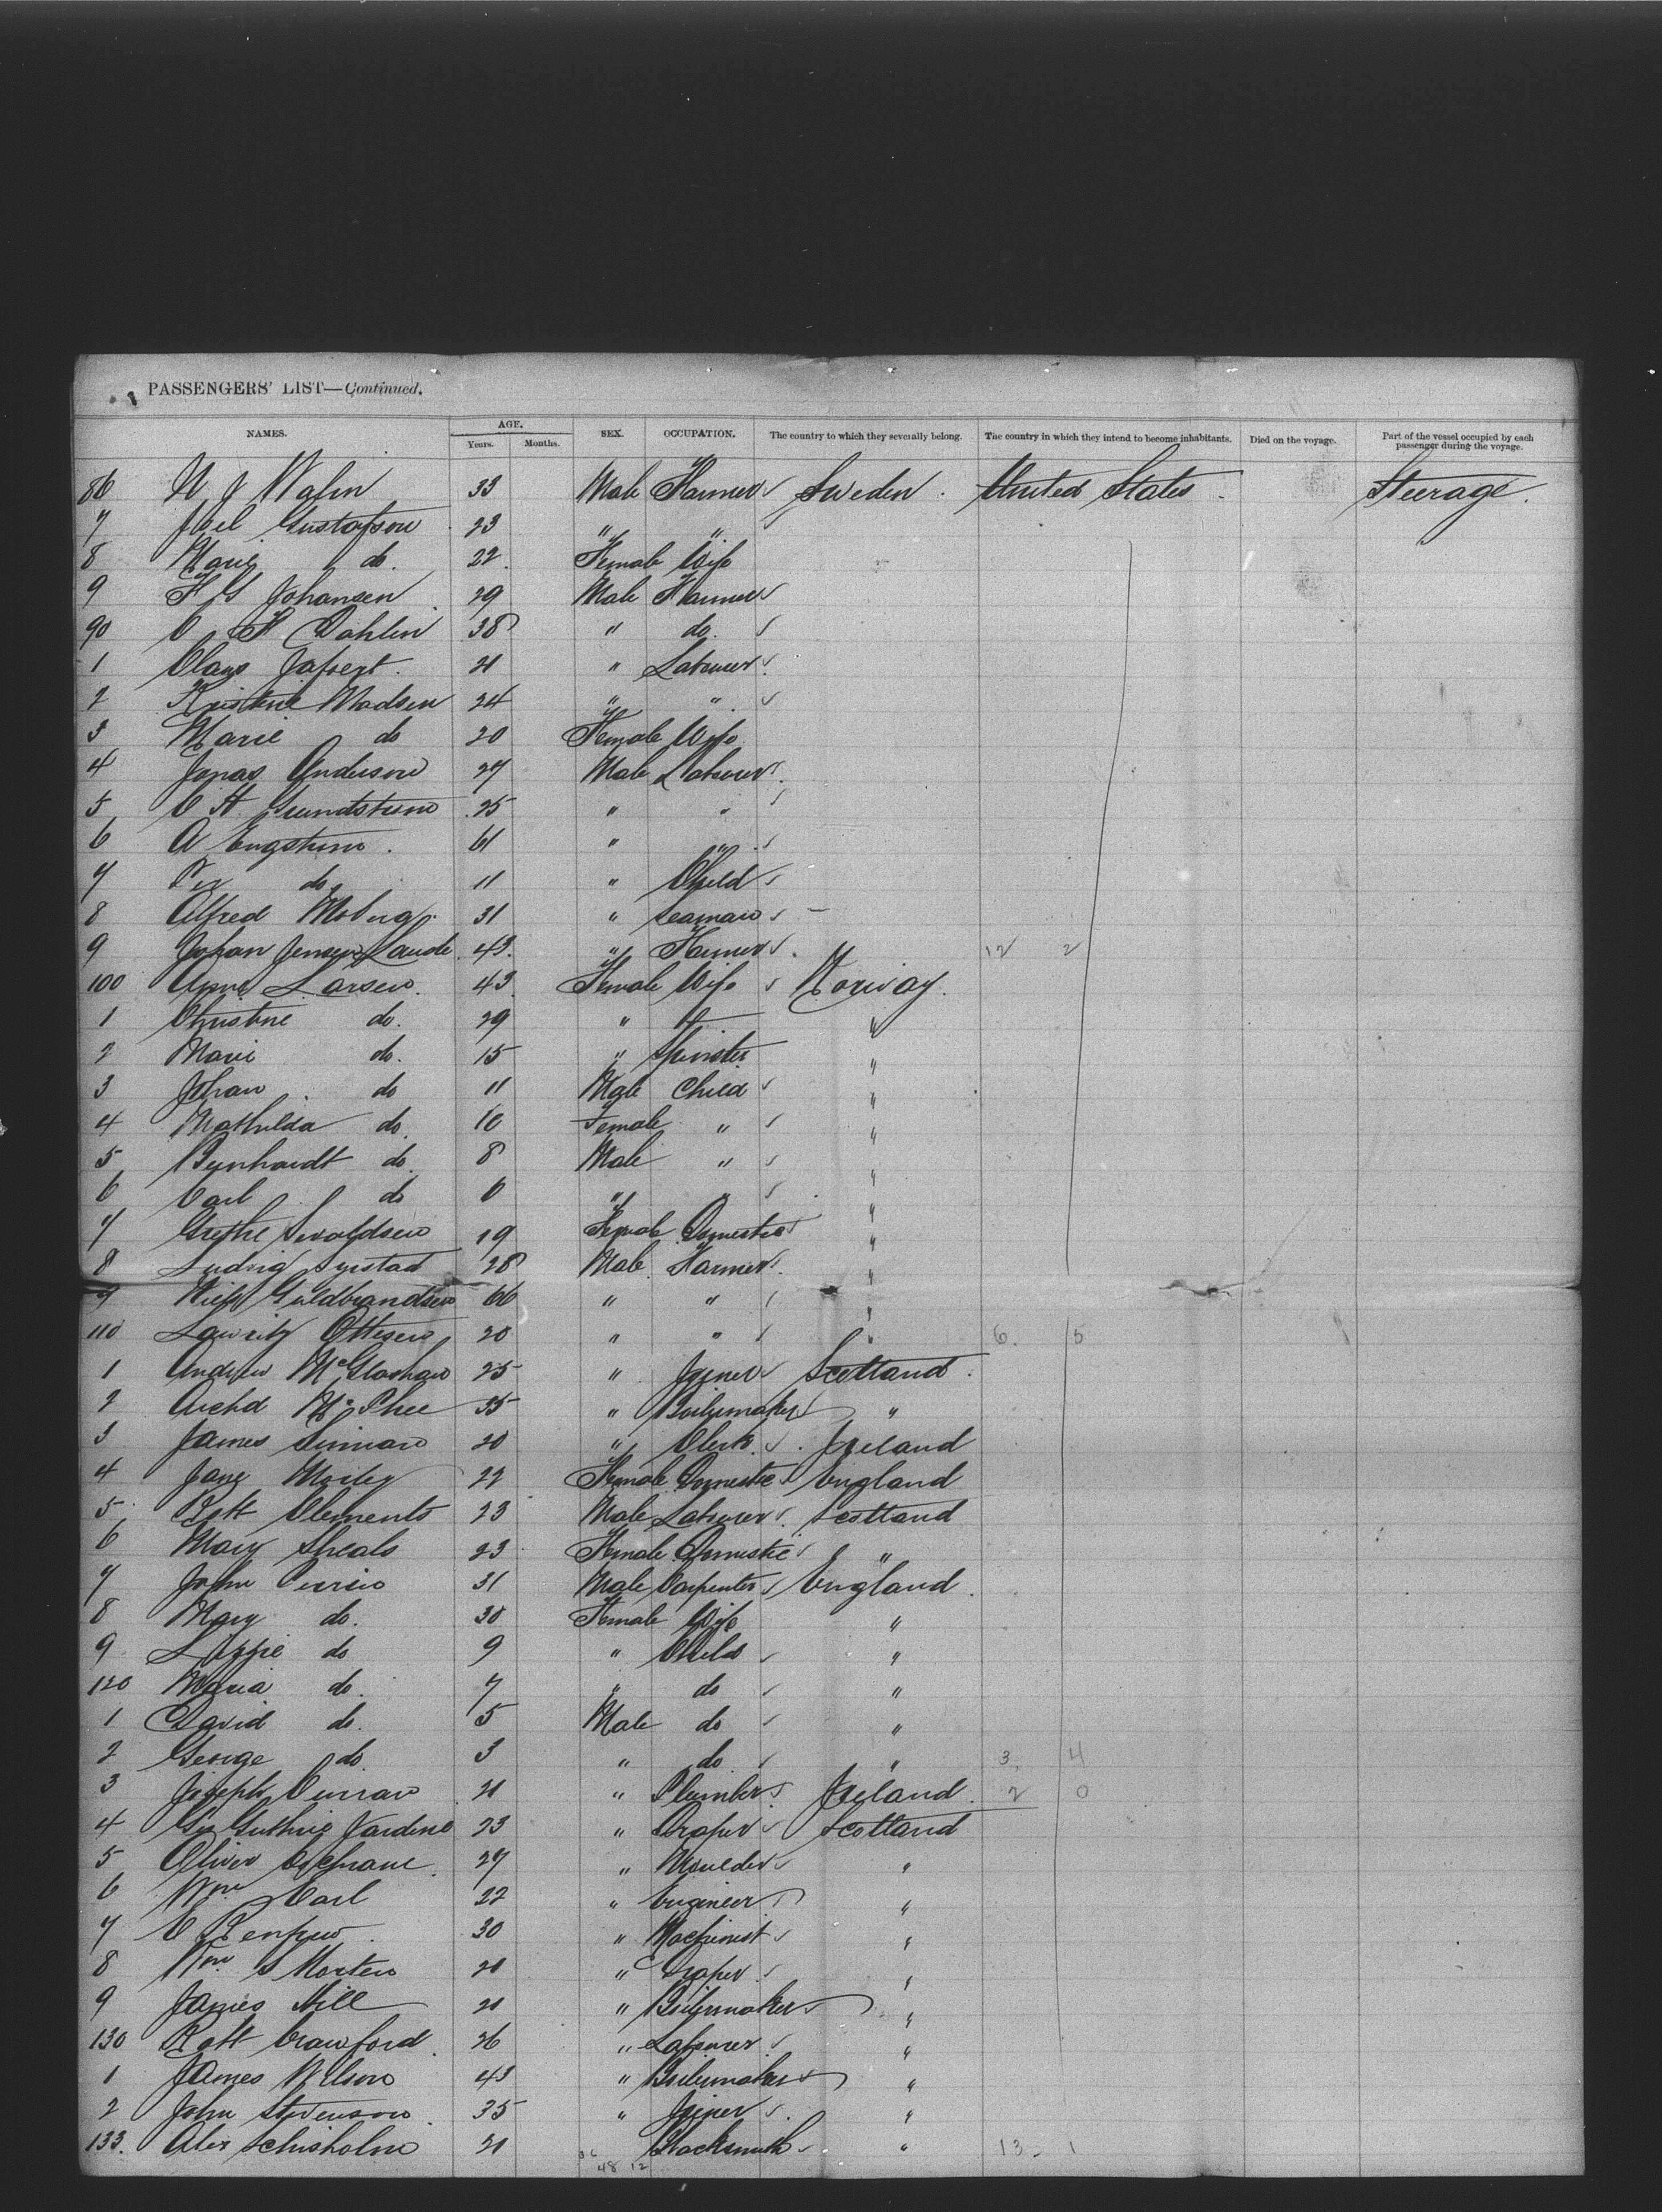 PASSENGERS' LIST—Continued.
NAMES. AGE. Years. Months. SEX. OCCUPATION. The country to which they severally belong. The country in which they intend to become inhabitants. Died on the voyage. Part of the vessel occupied by each passenger during the voyage.
86 N J Walin 33 Male Farmer Sweden. United States. Steerage.
7 Joel Gustafson 23 " "
8 Marie do. 22. Female Wife
9 F G Johansen 29 Male Farmer
90 C F Dahlin 38 " do.
1 Claus 21 " Labourer
2 Kristine Madsen 24 " "
3 Marie do 20 Female Wife
4 Jonas Anderson 27 Male Labourer
5 C H Grundstrom 25 " "
6 A Engstrom. 61 " "
7 Per do. 11 " Child
8 Alfred Moberg. 31 " Seaman
9 Johan Jensen Laude 43. " Farmer 12 2
100 Anna Larsen. 43. Female Wife Norway.
1 Christine do. 29 " "
2 Marie do. 15 " Spinster "
3 Johan do 11 Male Child "
4 Mathilda do. 10 Female " "
5 Bernhardt do. 8 Male " "
6 Carl do 6 " " "
7 Grethe 19 Female Domestic "
8 Ludvig 28 Male Farmer "
9 Guldbrandsen 66 " " "
110 Lauritz Ottesen 20 " " " 6. 5
1 Andrew McGlashan 25 " Joiner Scotland.
2 Archd McPhee 35 " Boilermaker "
3 James 20 " Clerk Ireland
4 Jane Morley 22 Female Domestic England
5 Robt Clements 23 Male Labourer Scotland
6 Mary Sheals 23 Female Domestic "
7 John 31 Male Carpenter England.
8 Mary do. 30 Female Wife "
9 Lizzie do 9 " Child "
120 Maria do. 7 " do "
1 David do. 5 Male do "
2 George do. 3 " do " 3. 4
3 Joseph Curran 21 " Plumber Ireland. 2 0
4 Guthrie Jardine 23 " Draper Scotland
5 Oliver Cochrane. 27 " Moulder "
6 Wm Carl 22 " Engineer "
7 C Renfrew. 30 " Machinist "
8 Wm S Morten 20 " Draper "
9 James Hill 21 " Boilermaker "
130 Robt Crawford. 26 " Labourer "
1 James Wilson 43 " Boilermaker "
2 John Stevenson. 35 " Joiner "
133. Alex Schisholm 21 Blacksmith " 13. 1
48 12